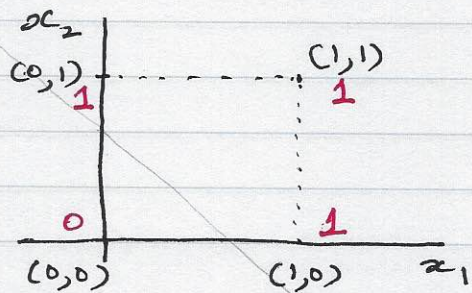 x₂
(0,1)
(1,1)
1
1
0
1
(0,0)
(1,0)
x₁